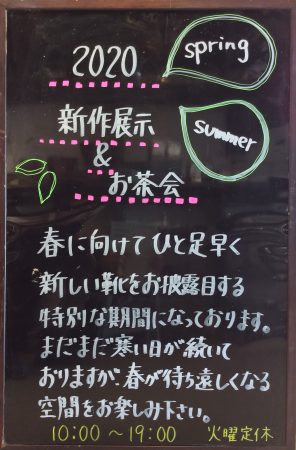 2020
spring
新作展示
summer
&
お茶会
春に向けてひと足早く
新しい靴をお披露目する
特別な期間になっております。
まだまだ寒い日が続いて
おりますが、春が待ち遠しくなる
空間をお楽しみ下さい。
10:00～19:00 火曜定休